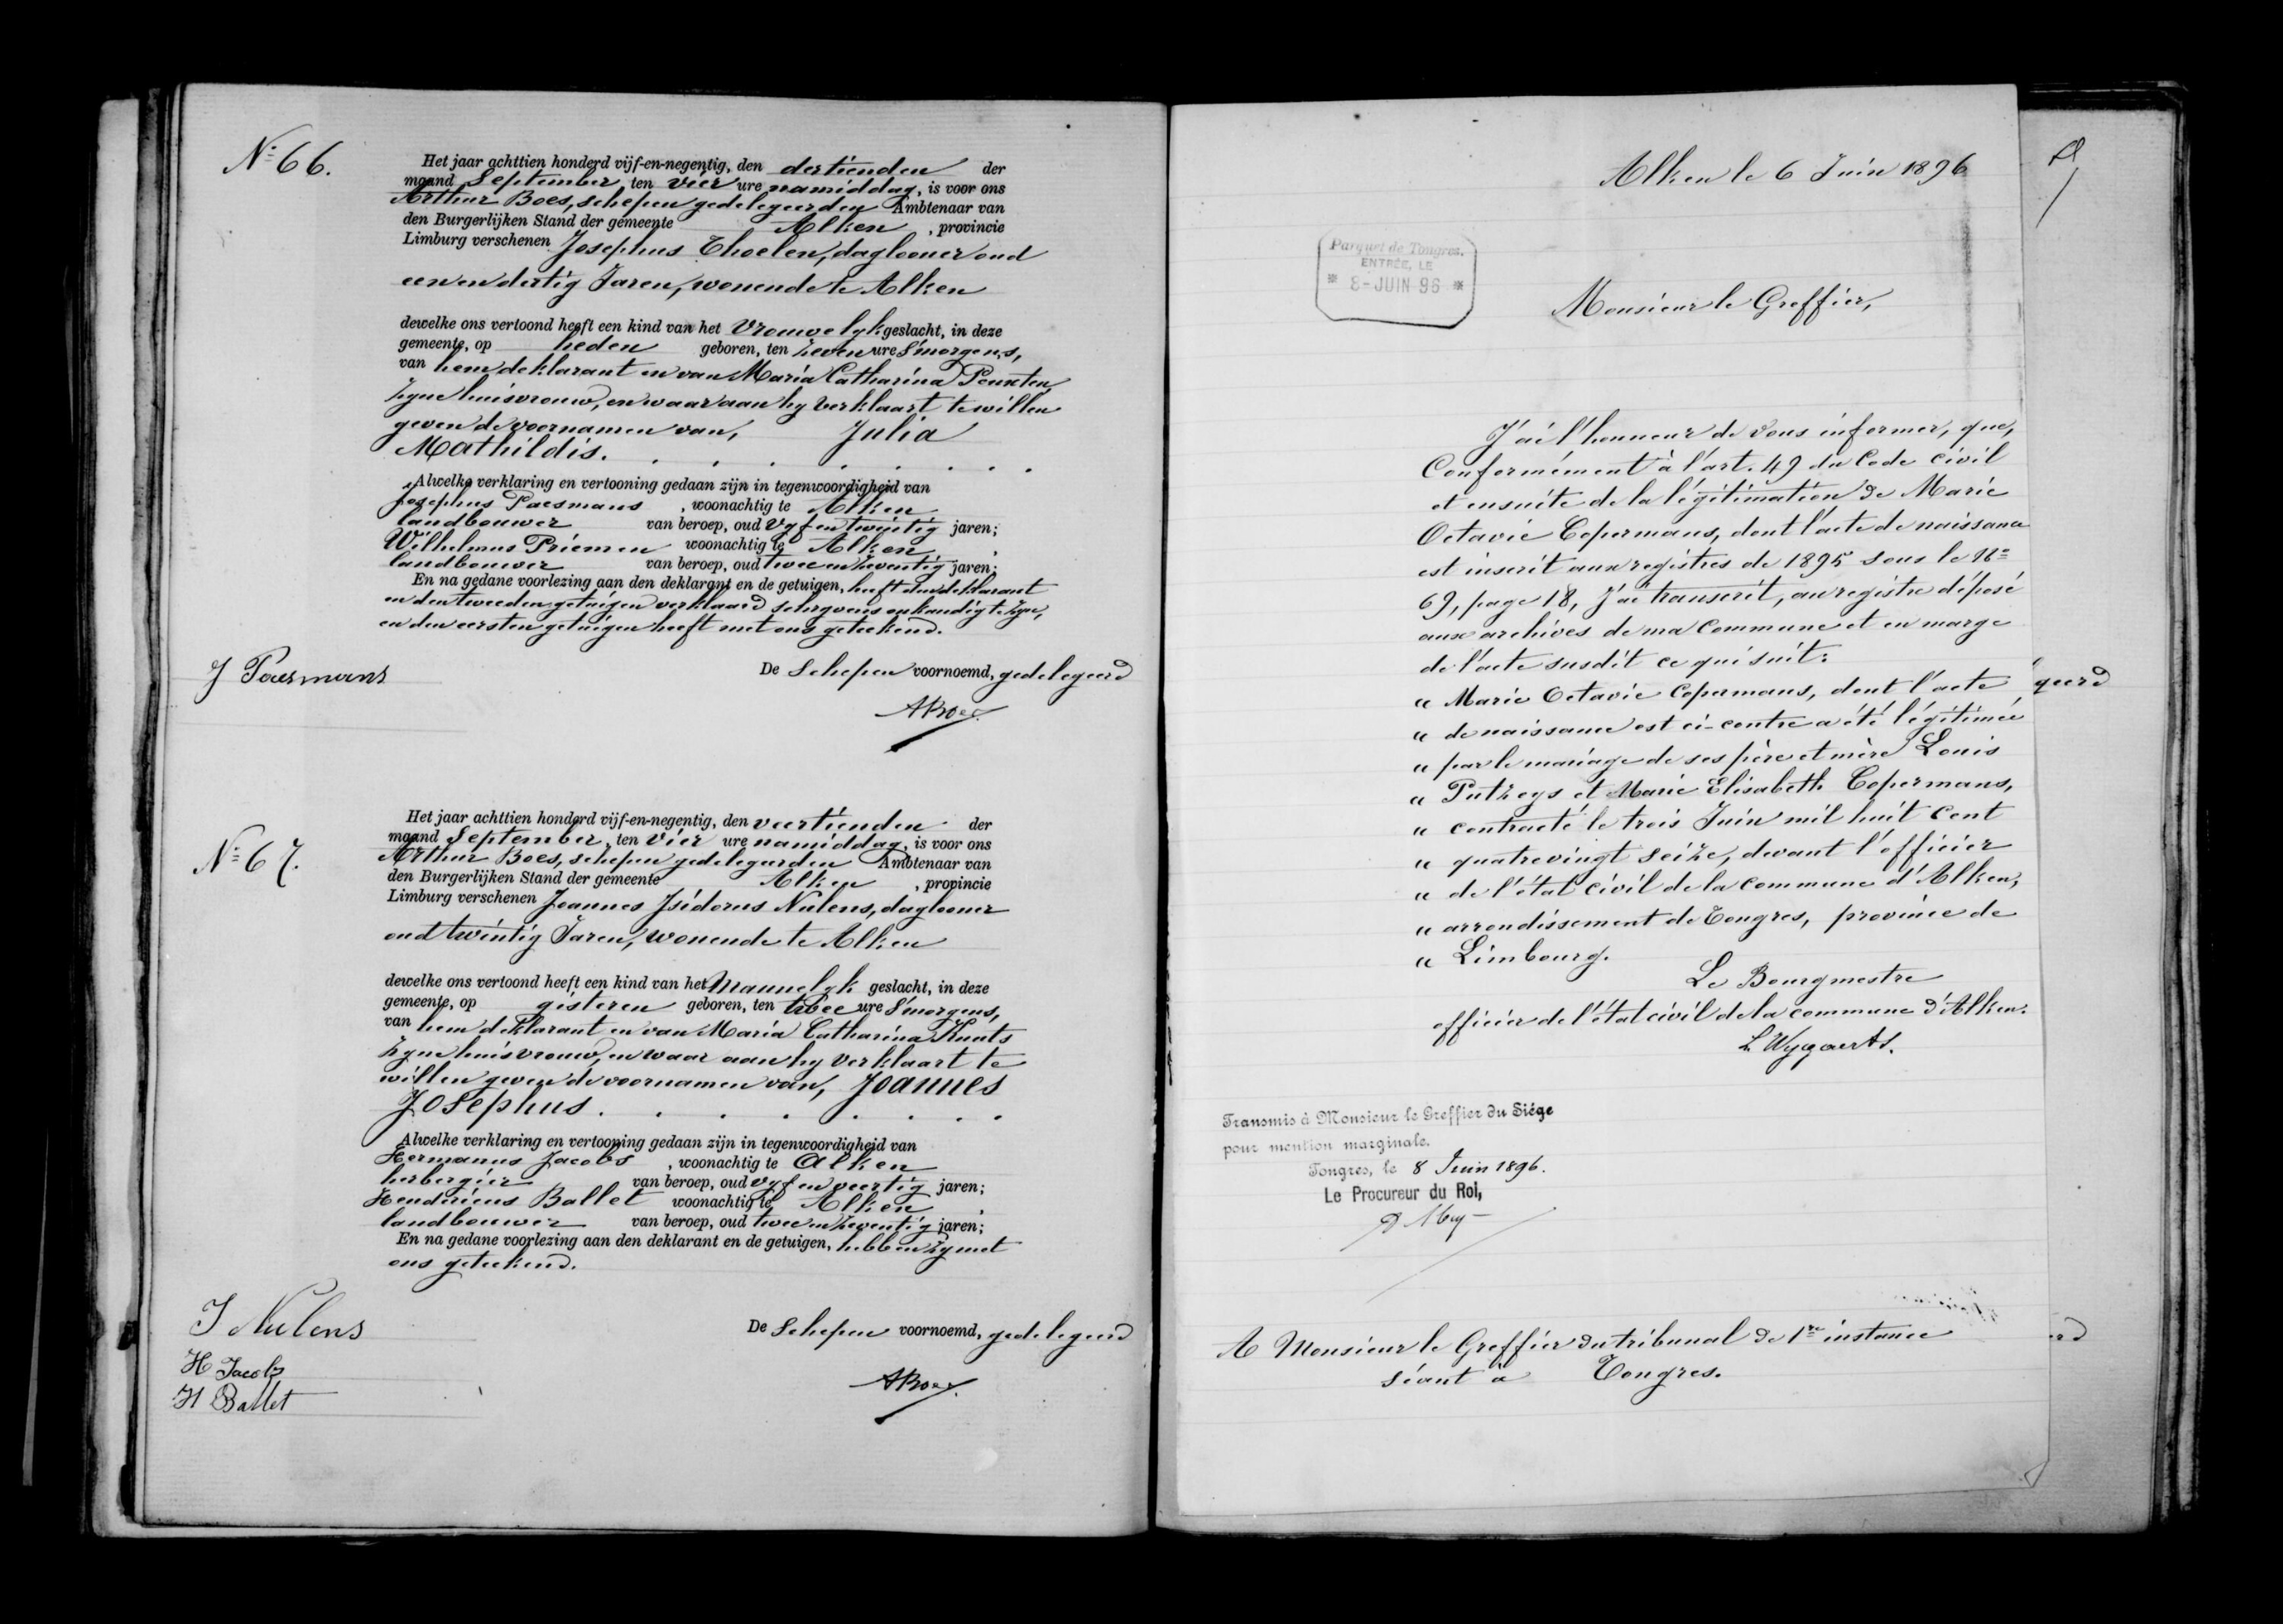 N° 66.
Het jaar achttien honderd vijf-en-negentig, den dertienden der
maand September, ten vier ure namiddag, is voor ons
Arthur Boes, schepen gedelegeerden Ambtenaar van
den Burgerlijken Stand der gemeente Alken, provincie
Limburg verschenen Josephus Thoelen, daglooner oud
een en dertig Jaren, wonende te Alken
dewelke ons vertoond heeft een kind van het vrouwelyk geslacht, in deze
gemeente, op heden geboren, ten zeven ure s'morgens,
van hem deklarant en van Maria Catharina
zyne huisvrouw, en waaraan hy verklaart te willen
geven de voornamen van, Julia
Mathildis. . . . . . . . .
Alwelke verklaring en vertooning gedaan zijn in tegenwoordigheid van
Josephus Paesmans, woonachtig te Alken
landbouwer van beroep, oud vyf en twintig jaren;
Wilhelmus Priemen woonachtig te Alken,
landbouwer van beroep, oud twee en zeventig jaren;
En na gedane voorlezing aan den deklarant en de getuigen, heeft den deklarant
en den tweeden getuigen verklaard schryvens onkundig te zyn,
en den eersten getuigen heeft met ons geteekend.
J Paesmans
De Schepen voornoemd, gedelegeerd
ABoes
N° 67.
Het jaar achttien honderd vijf-en-negentig, den veertienden der
maand September, ten vier ure namiddag, is voor ons
Arthur Boes, schepen gedelegeerden Ambtenaar van
den Burgerlijken Stand der gemeente Alken, provincie
Limburg verschenen Joannes Isidorus Nulens, daglooner
oud twintig Jaren, wonende te Alken
dewelke ons vertoond heeft een kind van het Mannelyk geslacht, in deze
gemeente, op gisteren geboren, ten twee ure s'morgens,
van hem deklarant en van Maria Catharina Knuts
zyne huisvrouw, en waar aan hy verklaart te
willen geven de voornamen van, Joannes
Josephus. . . . . . . .
Alwelke verklaring en vertooning gedaan zijn in tegenwoordigheid van
Hermanus Jacobs, woonachtig te Alken
herbergier van beroep, oud vyf en veertig jaren;
Hendricus Ballet woonachtig te Alken,
landbouwer van beroep, oud twee en zeventig jaren;
En na gedane voorlezing aan den deklarant en de getuigen, hebben zy met
ons geteekend.
J Nulens
H Jacobs
H Ballet
De Schepen voornoemd, gedelegeerd
ABoes
Alken le 6 Juin 1896
Parquet de Tongres.
ENTRÉE, LE
* 8-JUIN 96 *
Monsieur le Greffier,
J'ai l'honneur de vous informer, que,
Conformément à l'art. 49 du Code civil
et ensuite de la légitimation de Marie
Octavie Copermans, dont l'acte de naissance
est inscrit aux registres de 1895 sous le N°
69, page 18, j'ai transcrit, au registre déposé
aux archives de ma commune et en marge
de l'acte susdit ce qui suit:
" Marie Octavie Copermans, dont l'acte
" de naissance est ci-contre a été légitimée
" par le mariage de ses père et mère Louis
" Putzeys et Marie Elisabeth Copermans,
" contracté le trois Juin mil huit cent
" quatrevingt seize, devant l'officier
" de l'état civil de la commune d'Alken,
" arrondissement de Tongres, province de
" Limbourg.
Le Bourgmestre
officier de l'état civil de la commune d'Alken.
L. Wygaerts.
Transmis à Monsieur le Greffier du Siége
pour mention marginale.
Tongres, le 8 Juin 1896.
Le Procureur du Roi,
A Monsieur le Greffier du tribunal de 1re instance
séant à Tongres.
geerd